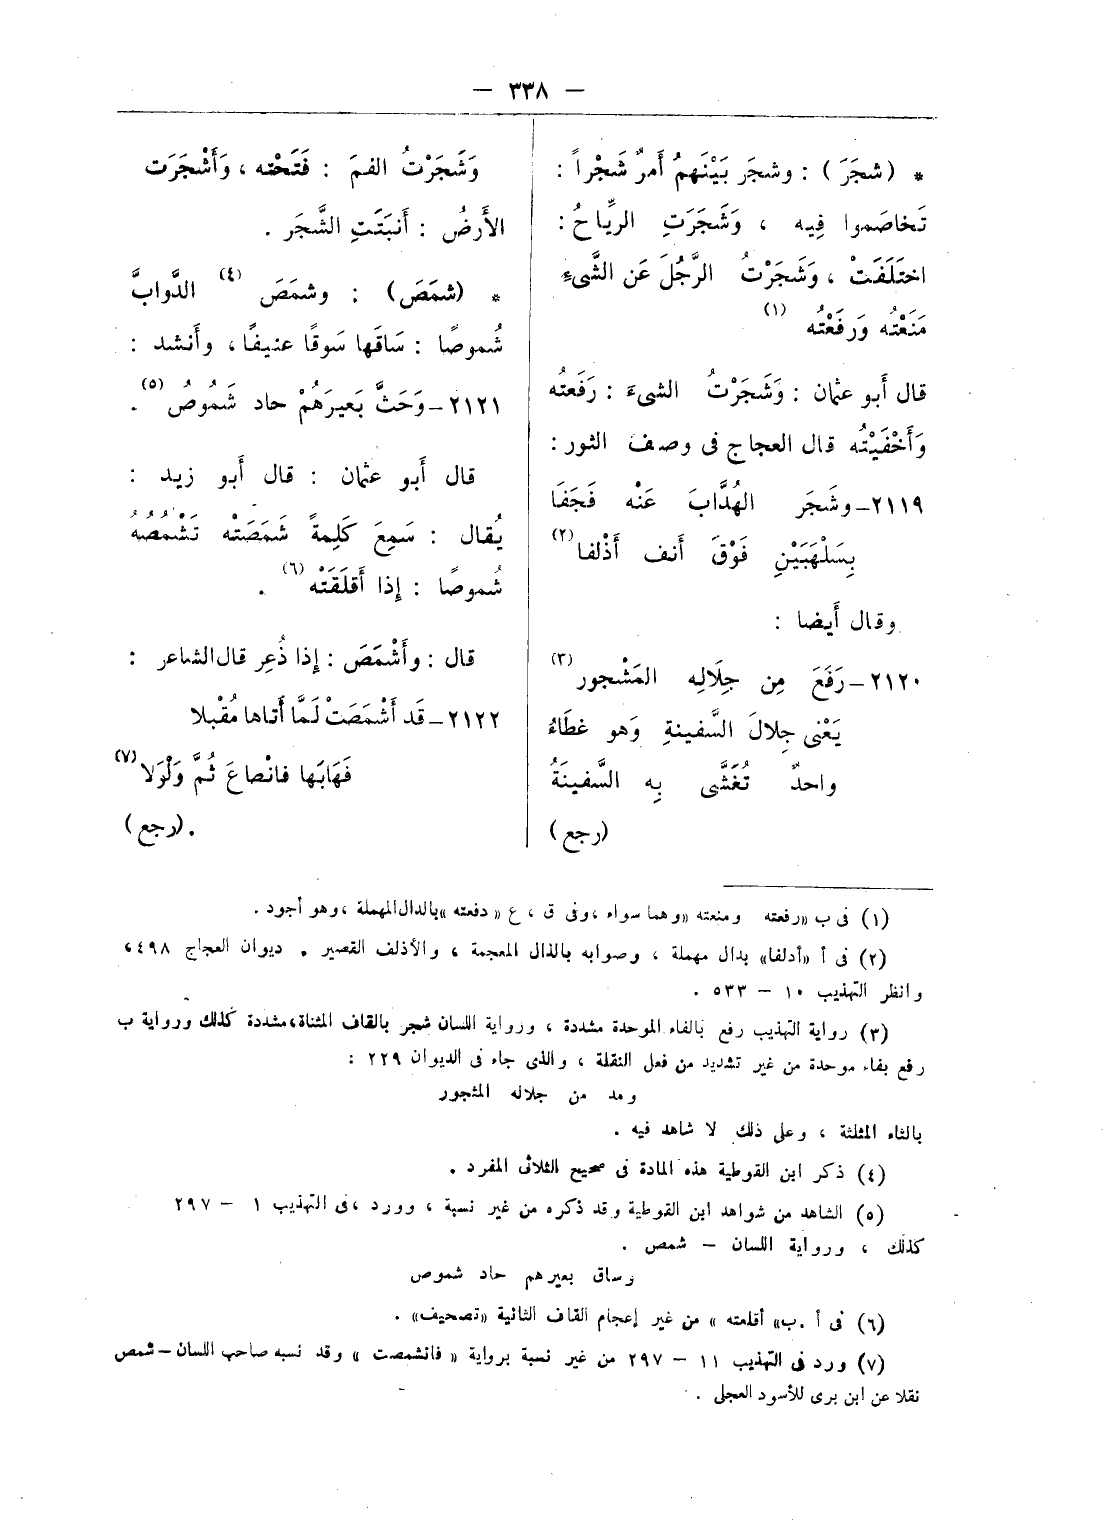 — ٣٣٨ —
* (شجَرَ) : وشجَر بَيْنَهمُ أمرٌ شَجْراً :
تَخاصَموا فِيه ، وَشَجَرَتِ الرِّياحُ :
اختَلَفَتْ ، وَشَجَرْتُ الرَّجُلَ عَن الشَّىءِ
مَنَعْتُه وَرفَعْتُه (١)
قال أَبو عثمان : وَشَجَرْتُ الشىءَ : رَفَعتُه
وَأَخْفَيْتُه قال العجاج فى وصف الثور :
٢١١٩ــ وشَجَر الهُدَّابَ عَنْه فَجَفَا
بِسَلْهَبَيْنِ فَوْقَ أَنف أَذْلفا (٢)
وقال أَيضا :
٢١٢٠ــ رَفَعَ مِن جِلَالِه المَشْجور (٣)
يَعْنى جِلالَ السَّفينةِ وَهو غطَاءُ
واحدٌ تُغَشَّى بِه السَّفينَةُ
(رجع)
وَشَجَرْتُ الفمَ : فَتَحْته ، وَأَشْجَرَت
الأَرضُ : أَنبَتَتِ الشَّجَر .
* (شمَصَ) : وشمَصَ (٤) الدَّوابَّ
شُموصًا : سَاقَها سَوقًا عنيفًا ، وأَنشد :
٢١٢١ــ وَحَثَّ بَعيرَهُمْ حاد شَمُوصُ (٥) .
قال أَبو عثمان : قال أَبو زيد :
يُقال : سَمِعَ كَلِمةً شَمَصَتْه تَشْمُصُهُ
شُموصًا : إذا أَقلَقَتْه (٦) .
قال : وأَشْمَصَ : إذا ذُعِر قال الشاعر :
٢١٢٢ــ قَد أَشْمَصَتْ لَمَّا أَتاها مُقْبلا
فَهَابَها فانْصاعَ ثُمَّ وَلْوَلا (٧)
. (رجع)
(١) فى ب «رفعته ومنعته» وهما سواء ، وفى ق ، ع « دفعته » بالدال المهملة ، وهو أجود .
(٢) فى أ «أدلفا» بدال مهملة ، وصوابه بالذال المعجمة ، والأذلف القصير . ديوان العجاج ٤٩٨ ،
وانظر التهذيب ١٠ – ٥٣٣ .
(٣) رواية التهذيب رفع بالفاء الموحدة مشددة ، ورواية اللسان شجر بالقاف المثناة ، مشددة كذلك ورواية ب
رفع بفاء موحدة من غير تشديد من فعل النقلة ، والذى جاء فى الديوان ٢٢٩ :
ومد من جلاله المثجور
بالثاء المثلثة ، وعلى ذلك لا شاهد فيه .
(٤) ذكر ابن القوطية هذه المادة فى صحيح الثلاثى المفرد .
(٥) الشاهد من شواهد ابن القوطية وقد ذكره من غير نسبة ، وورد ، فى التهذيب ١ – ٢٩٧
كذلك ، ورواية اللسان – شمص .
وساق بعيرهم حاد شموص
(٦) فى أ . ب» أقلعته » من غير إعجام القاف الثانية «تصحيف» .
(٧) ورد فى التهذيب ١١ – ٢٩٧ من غير نسبة برواية « فانشمصت » وقد نسبه صاحب اللسان – شمص
نقلا عن ابن برى للأسود العجلى .